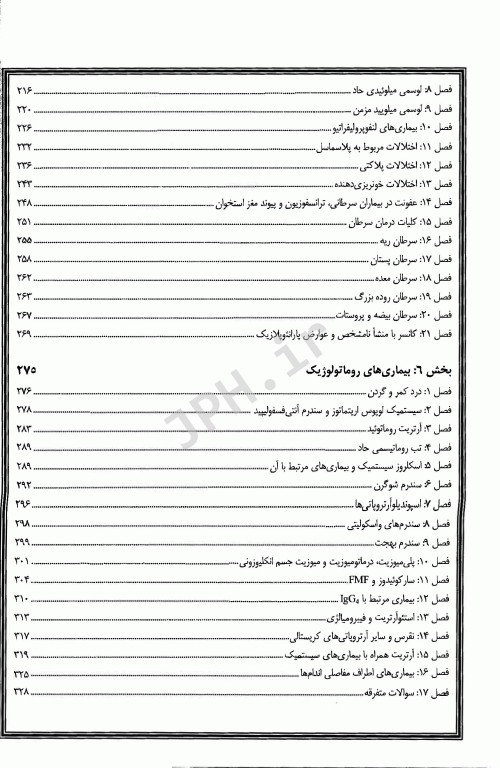 فصل ۸: لوسمی میلوئیدی حاد ۲۱۶
فصل ۹: لوسمی میلویید مزمن ۲۲۰
فصل ۱۰: بیماری‌های لنفوپرولیفراتیو ۲۲۶
فصل ۱۱: اختلالات مربوط به پلاسماسل ۲۳۲
فصل ۱۲: اختلالات پلاکتی ۲۳۶
فصل ۱۳: اختلالات خونریزی‌دهنده ۲۴۳
فصل ۱۴: عفونت در بیماران سرطانی، ترانسفوزیون و پیوند مغز استخوان ۲۴۸
فصل ۱۵: کلیات درمان سرطان ۲۵۱
فصل ۱۶: سرطان ریه ۲۵۵
فصل ۱۷: سرطان پستان ۲۵۸
فصل ۱۸: سرطان معده ۲۶۲
فصل ۱۹: سرطان روده بزرگ ۲۶۳
فصل ۲۰: سرطان بیضه و پروستات ۲۶۷
فصل ۲۱: کانسر با منشأ نامشخص و عوارض پارانئوپلازیک ۲۶۹
بخش ۶: بیماری‌های روماتولوژیک ۲۷۵
فصل ۱: درد کمر و گردن ۲۷۶
فصل ۲: سیستمیک لوپوس اریتماتوز و سندرم آنتی‌فسفولیپید ۲۷۸
فصل ۳: آرتریت روماتوئید ۲۸۳
فصل ۴: تب روماتیسمی حاد ۲۸۹
فصل ۵: اسکلروز سیستمیک و بیماری‌های مرتبط با آن ۲۸۹
فصل ۶: سندرم شوگرن ۲۹۲
فصل ۷: اسپوندیلوآرتروپاتی‌ها ۲۹۶
فصل ۸: سندرم‌های واسکولیتی ۲۹۸
فصل ۹: سندرم بهجت ۲۹۹
فصل ۱۰: پلی‌میوزیت، درماتومیوزیت و میوزیت جسم انکلیوزونی ۳۰۱
فصل ۱۱: سارکوئیدوز و FMF ۳۰۴
فصل ۱۲: بیماری مرتبط با IgG₄ ۳۱۰
فصل ۱۳: استئوآرتریت و فیبرومیالژی ۳۱۳
فصل ۱۴: نقرس و سایر آرتروپاتی‌های کریستالی ۳۱۷
فصل ۱۵: آرتریت همراه با بیماری‌های سیستمیک ۳۱۹
فصل ۱۶: بیماری‌های اطراف مفاصلی اندام‌ها ۳۲۵
فصل ۱۷: سوالات متفرقه ۳۲۸
JPH.ir